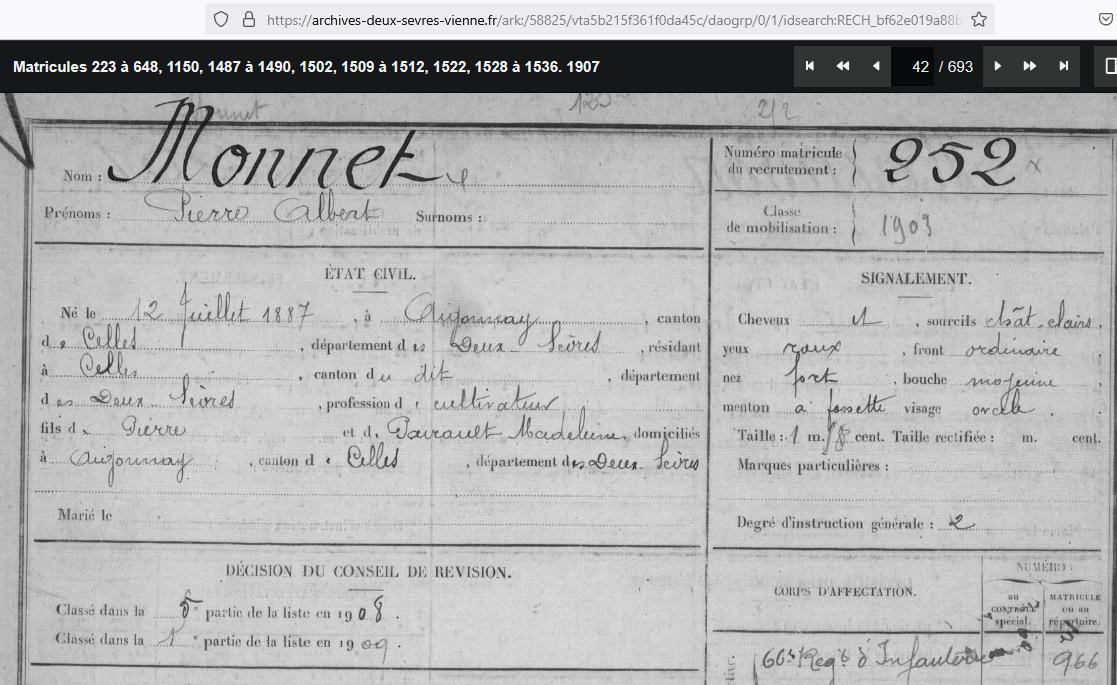 https://archives-deux-sevres-vienne.fr/ark:/58825/vta5b215f361f0da45c/daogrp/0/1/idsearch:RECH_bf62e019a88b
Matricules 223 à 648, 1150, 1487 à 1490, 1502, 1509 à 1512, 1522, 1528 à 1536. 1907
42 / 693
2/2
Nom : Monnet
Prénoms : Pierre Albert Surnoms :
Numéro matricule du recrutement : 252
Classe de mobilisation : 1903
ÉTAT CIVIL.
Né le 12 Juillet 1887, à Aujonnay, canton
de Celles, département des Deux Sèvres, résidant
à Celles, canton du dit, département
des Deux-Sèvres, profession de cultivateur
fils de Pierre et de Pairault Madeleine, domiciliés
à Aujonnay, canton de Celles, département des Deux Sèvres
Marié le
SIGNALEMENT.
Cheveux et, sourcils chât-clairs,
yeux roux, front ordinaire
nez fort, bouche moyenne,
menton à fossette visage ovale.
Taille : 1 m. cent. Taille rectifiée : m. cent.
Marques particulières :
Degré d'instruction générale : 2
DÉCISION DU CONSEIL DE REVISION.
Classé dans la 5e partie de la liste en 1908.
Classé dans la 1e partie de la liste en 1909.
CORPS D'AFFECTATION.
NUMÉRO
au CONTRÔLE spécial.
MATRICULE ou au répertoire.
66e Regt d'Infanterie
966